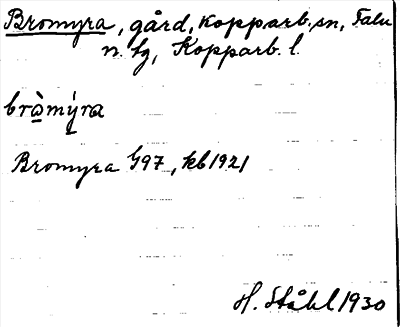 Bromyra, gård, Kopparb. sn, Falu
n. tg, Kopparb. l.
bro̱mýra
Bromyra G97, kb 1921
H. Ståhl 1930